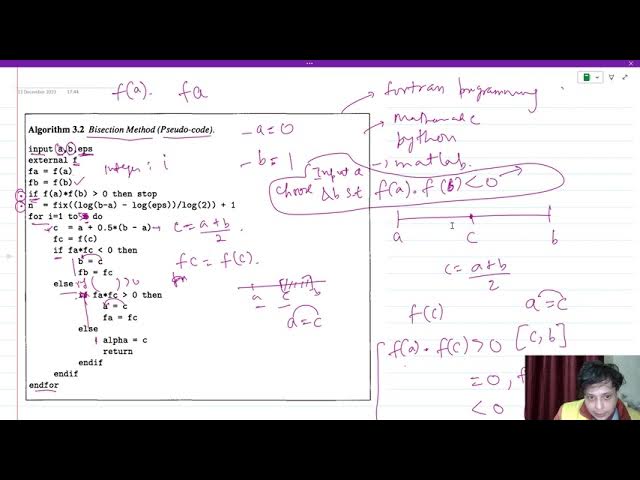 13 December 2023 17:44
f(a). fa
Algorithm 3.2 Bisection Method (Pseudo-code).
input a,b,eps
external f
fa = f(a)
fb = f(b)
if f(a)*f(b) > 0 then stop
n = fix((log(b-a) - log(eps))/log(2)) + 1
for i=1 to do
c = a + 0.5*(b - a)
fc = f(c)
if fa*fc < 0 then
b = c
fb = fc
else ( ) >0
if fa*fc > 0 then
a = c
fa = fc
else
alpha = c
return
endif
endif
endfor
integer : i
- a = 0
- b = 1
c = a+b
2
fc = f(c).
a c b
a = c
fortran programming
python
matlab.
Input a
choose & b st f(a) . f(b) < 0
a I c b
c = a+b
2
f(c) a = c
f(a) . f(c) > 0 [c, b]
= 0, f
< 0